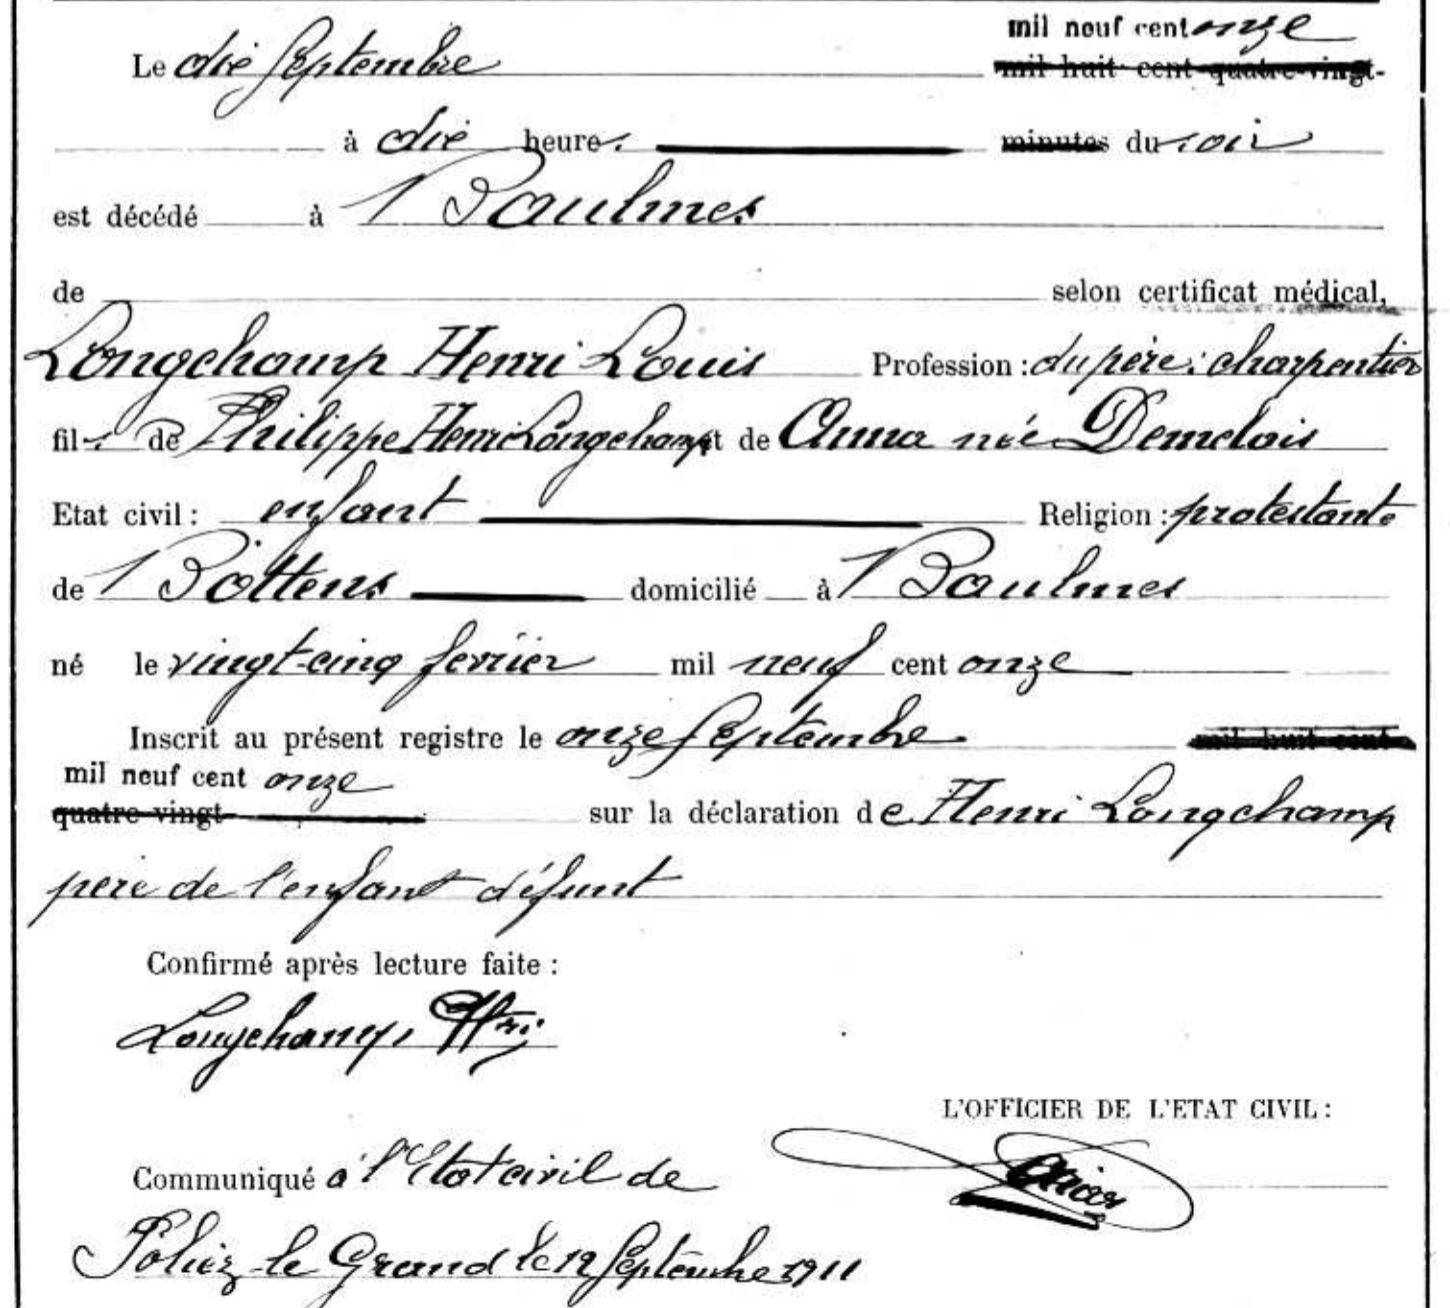 mil neuf cent onze
Le dix Septembre mil huit cent quatre-vingt-
à dix heures minutes du soir
est décédé à Baulmes
de selon certificat médical,
Longchamp Henri Louis Profession : du père : charpentier
fils de Philippe Henri Longchamp et de Anna née Demelais
Etat civil : enfant Religion : protestante
de Bottens domicilié à Baulmes
né le vingt-cinq fevrier mil neuf cent onze
Inscrit au présent registre le onze Septembre mil huit cent
mil neuf cent onze
quatre-vingt- sur la déclaration de Henri Longchamp
père de l'enfant défunt
Confirmé après lecture faite :
Longchamp Hri
L'OFFICIER DE L'ETAT CIVIL :
Communiqué à l'Etat civil de
Poliez-le Grand le 12 Septembre 1911